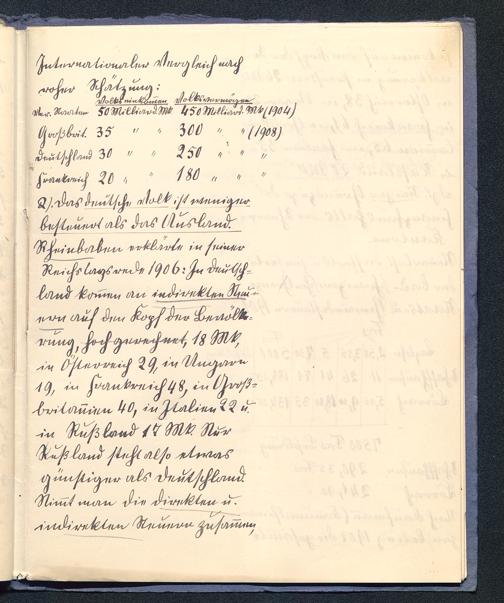 Internationaler Vergleich nach
roher Schätzung:
Volkseinkommen Volksvermögen
Ver. Staaten 50 Milliard. Mk 450 Milliard. Mk (1904)
Großbrit. 35 " " 300 " " (1908)
Deutschland 30 " " 250 " " "
Frankreich 20 " " 180 " " "
2). Das deutsche Volk ist weniger
besteuert als das Ausland.
Rheinbaben erklärte in seiner
Reichstagsrede 1906: In Deutsch-
land kom̄en an indirekten Steu-
ern auf den Kopf der Bevölke-
rung, hoch gerechnet, 18 Mk,
in Österreich 29, in Ungarn
19, in Frankreich 48, in Groß-
britan̄ien 40, in Italien 22 u.
in Rußland 17 Mk. Nur
Rußland steht also etwas
günstiger als Deutschland.
Nim̄t man die direkten u.
indirekten Steuern zusam̄en,